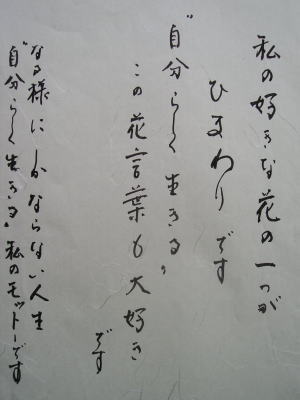 私の好きな花の一つが
ひまわりです
"自分らしく生きる"
この花言葉も大好き
です
なる様にしかならない人生
"自分らしく生きる"私のモットーです